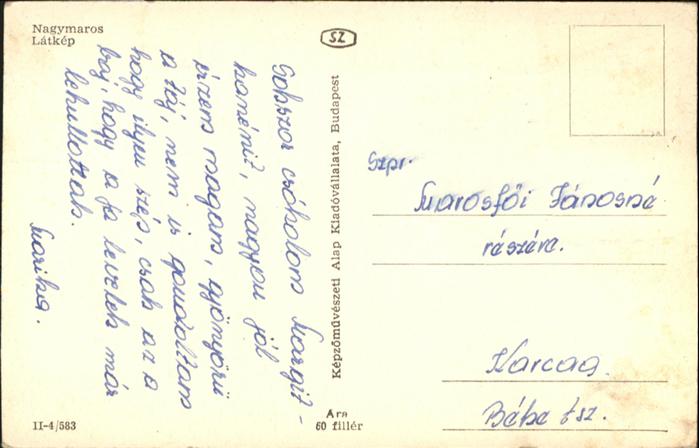 Nagymaros
Látkép
SZ
Sokszor csókolom Margit-
kanénit, nagyon jól
érzem magam, gyönyörű
a táj, nem is gondoltam
hogy ilyen szép, csak az a
baj, hogy a fa levelek már
lehullottak.
Marika.
Képzőművészeti Alap Kiadóvállalata, Budapest
Szpr.
Marosfői Jánosné
részére.
Karcag.
Béke tsz.
II-4/583
Ára
60 fillér